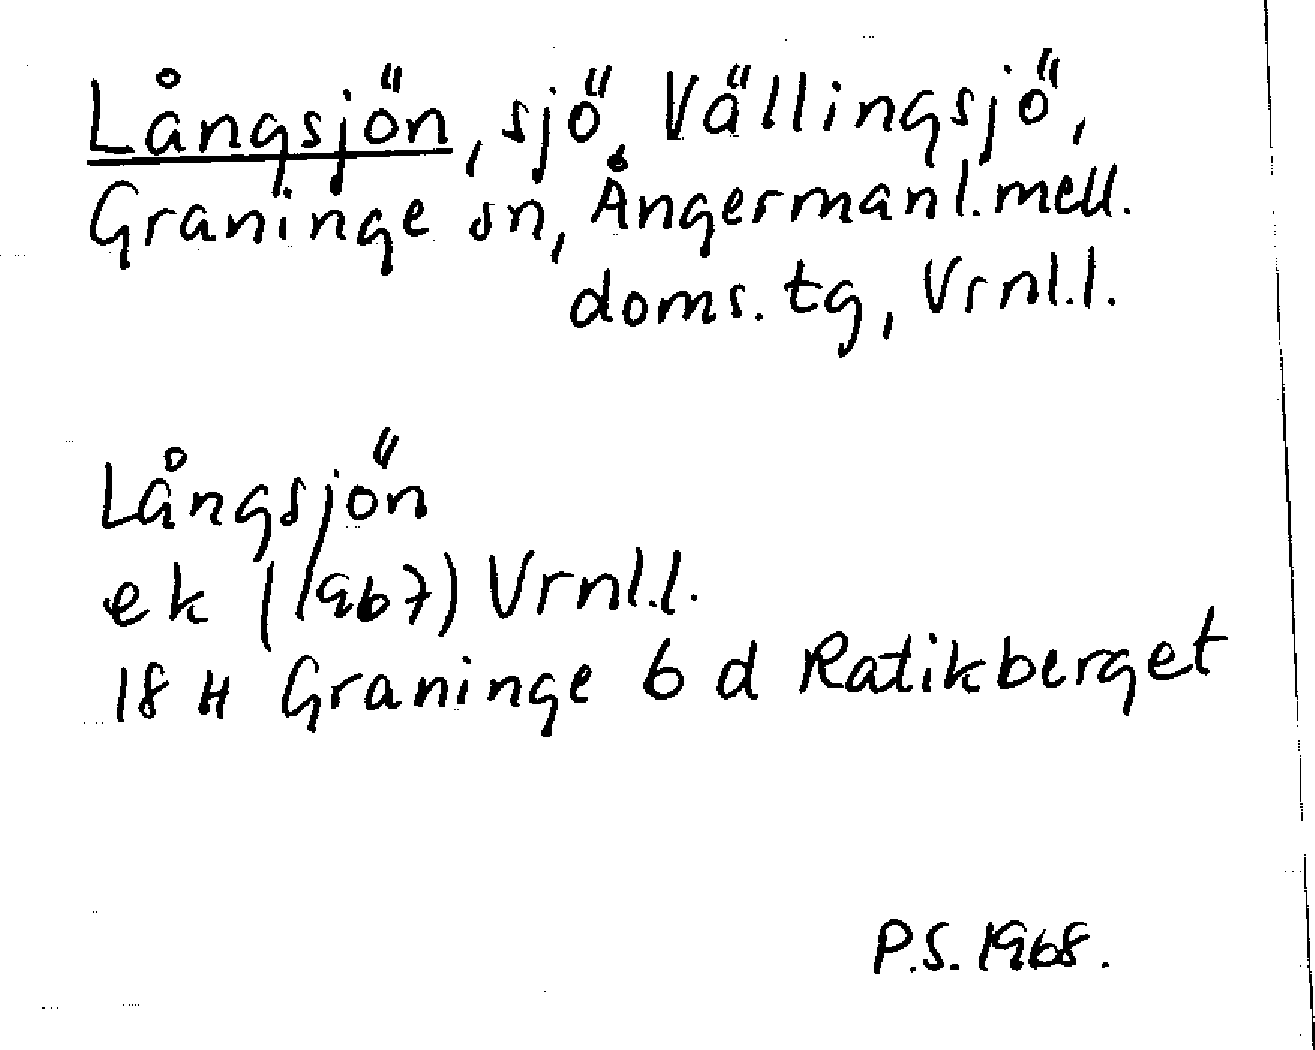 Långsjön, sjö, Vällingsjö,
Graninge sn, Ångermanl. mell.
doms. tg, Vrnl.l.
Långsjön
ek (1967) Vrnl.l.
18 H Graninge 6 d Ratikberget
P.S. 1968.